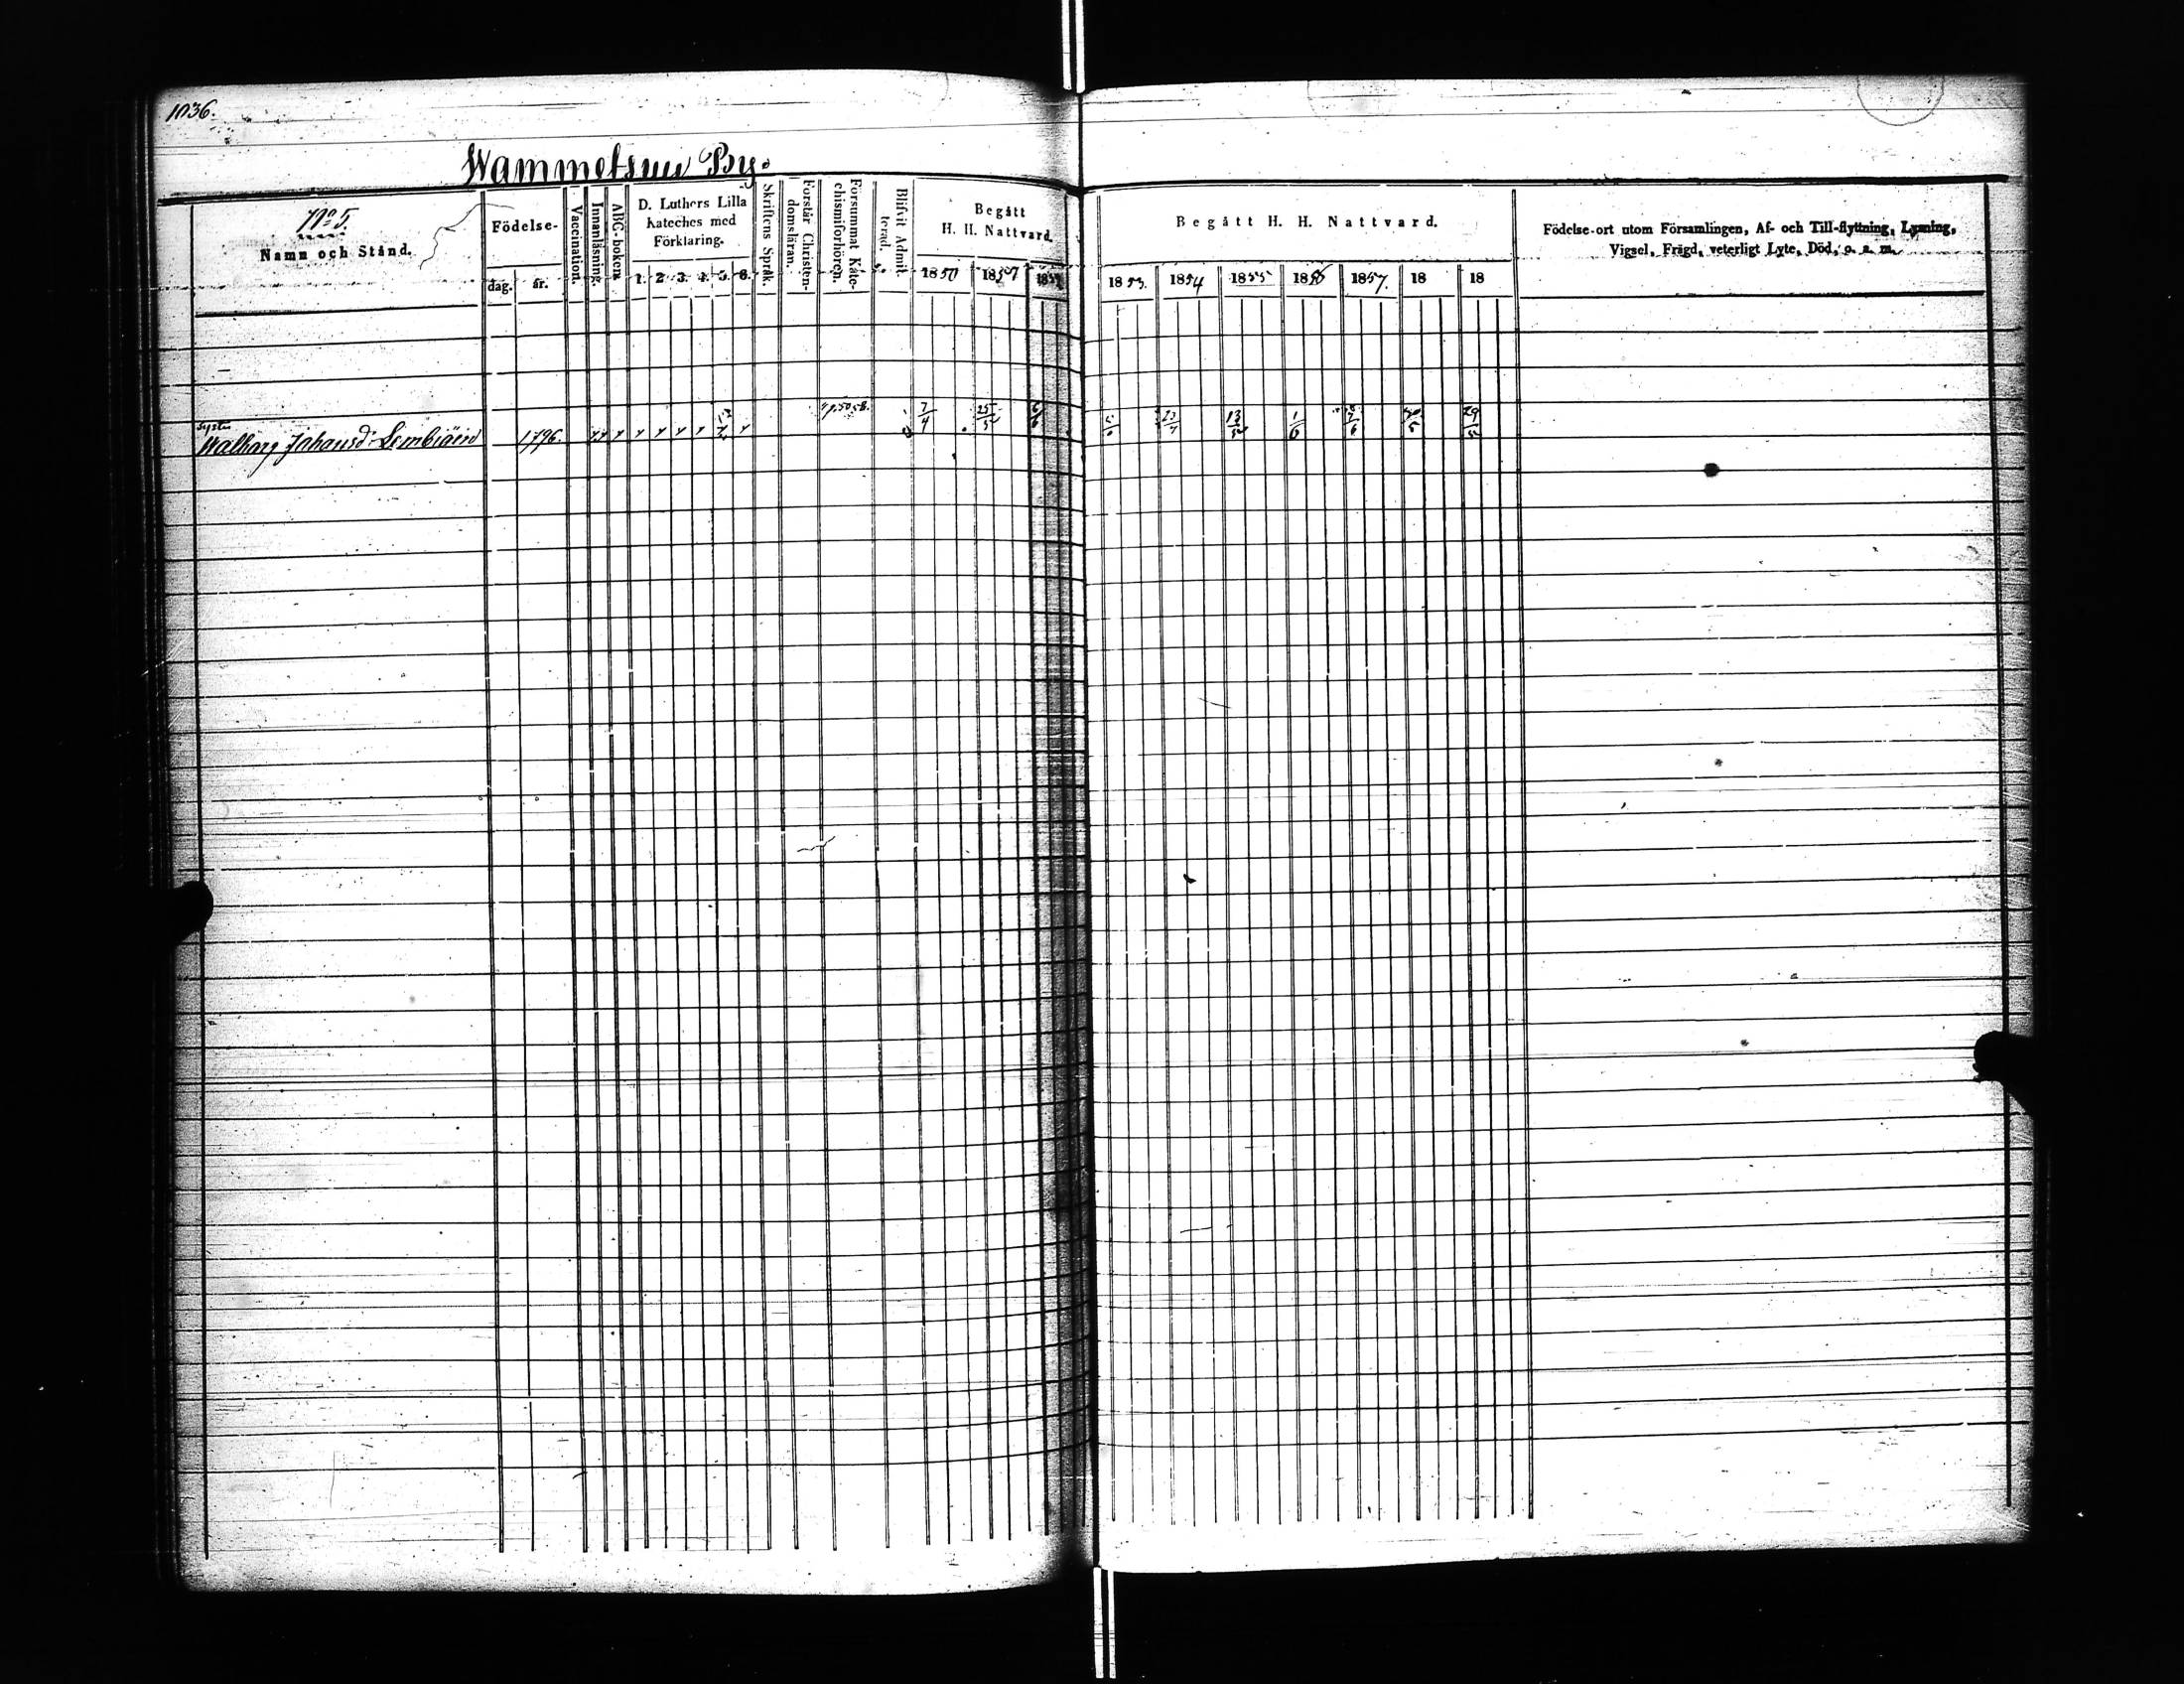 1036.
Wammelsuu By.
No 5.
Namn och Stånd.
Födelse-
dag. år.
Vaccination.
Innanläsning.
ABC-boken.
D. Luthers Lilla
Kateches med
Förklaring.
1. 2. 3. 4. 5. 6.
Skriftens Språk.
Förstår Christen-
domsläran.
Försummat Kate-
chismiförhören.
Blifvit Admit-
terad.
Begått
H. H. Nattvard.
1850 1851 1852
Begått H. H. Nattvard.
1853. 1854 1855 1856 1857. 18 18
Födelse-ort utom Församlingen, Af- och Till-flyttning, Lysning,
Vigsel, Frägd, veterligt Lyte, Död, o. s. m.
Syster
Walborg Johansd. Lembiäin 1796. 7/4 25/5 6/6 13/5 1/6 29/5